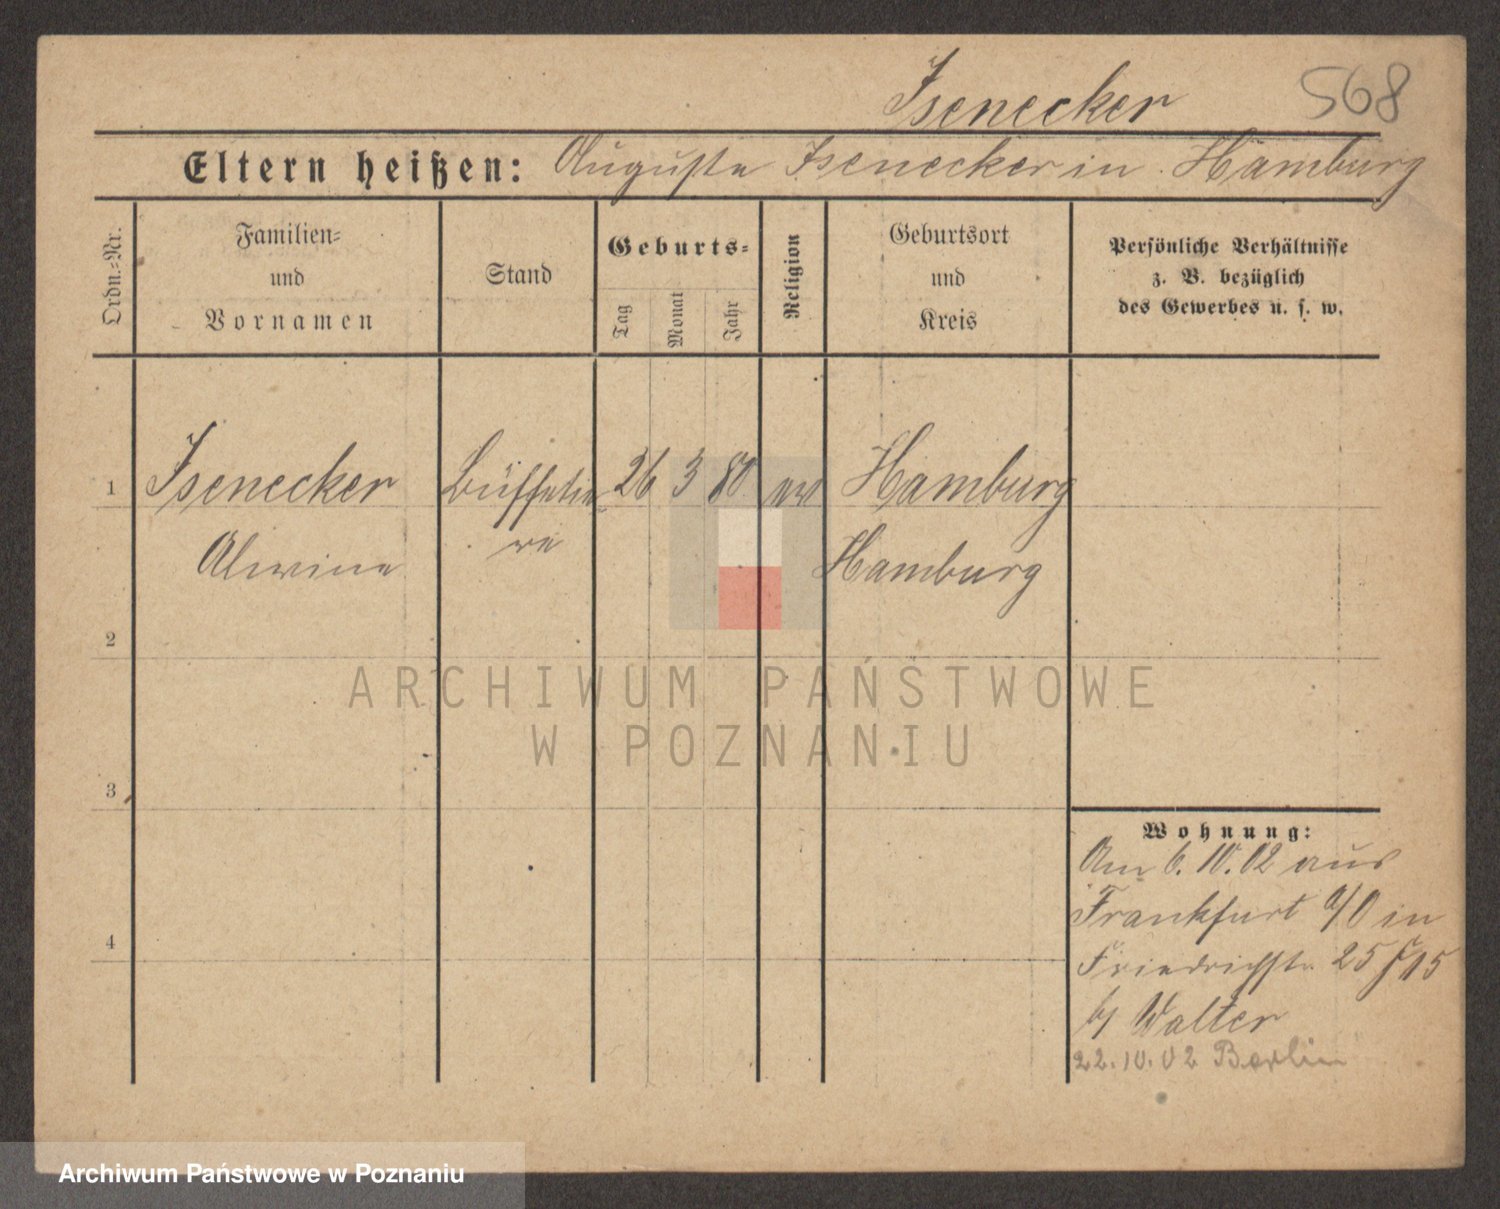 Isenecker 568
Eltern heißen: Auguste Isenecker in Hamburg
Ordn.-Nr.
Familien-
und
Vornamen
Stand
Geburts-
Tag
Monat
Jahr
Religion
Geburtsort
und
Kreis
Persönliche Verhältnisse
z. B. bezüglich
des Gewerbes u. s. w.
1 Isenecker 26 3 80 ev Hamburg
Alwine Hamburg
2
3
4
Wohnung:
Am 6.10.02 aus
Frankfurt a/O in
Friedrichstr. 25
b/ Walter
22.10.02 Berlin
ARCHIWUM PAŃSTWOWE
W POZNANIU
Archiwum Państwowe w Poznaniu